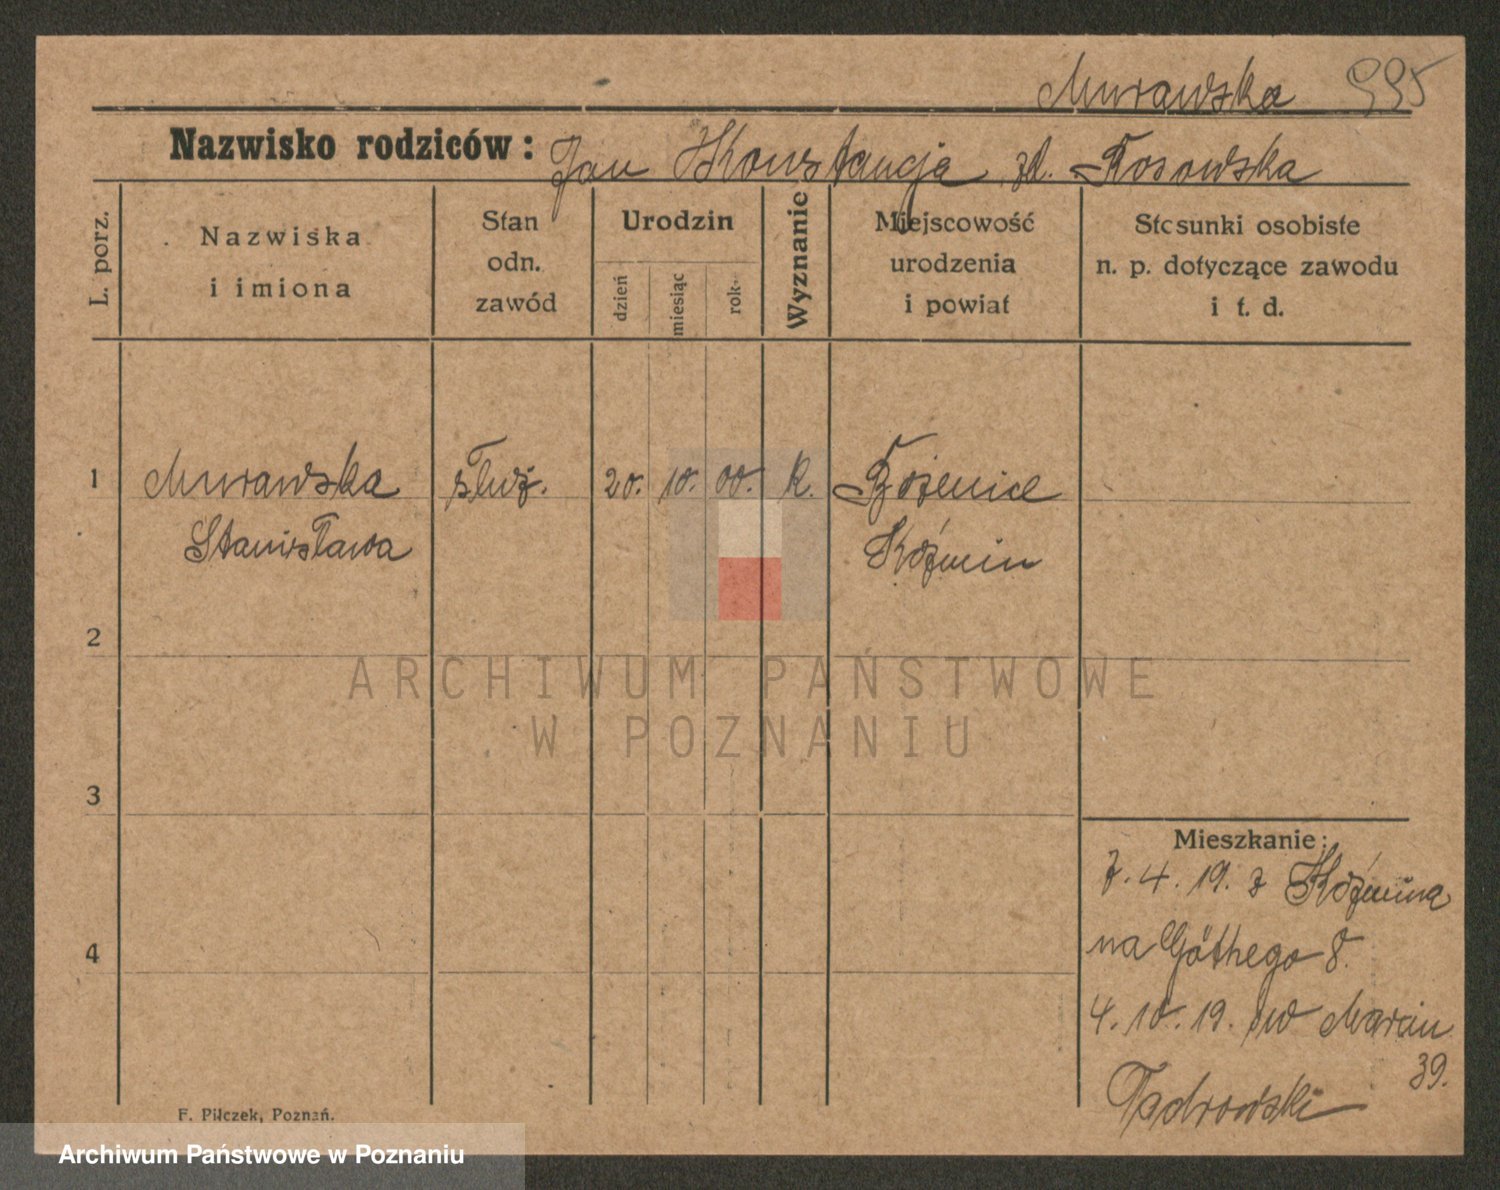 Murawska 995
Nazwisko rodziców: Jan Konstancja zd. Kosowska
L. porz.
Nazwiska
i imiona
Stan
odn.
zawód
Urodzin
dzień
miesiąc
rok
Wyznanie
Miejscowość
urodzenia
i powiat
Stosunki osobiste
n. p. dotyczące zawodu
i t. d.
1 Murawska służ. 20. 10. 00. K.
Stanisława Koźmin
2
3
4
Mieszkanie:
7. 4. 19. z Koźmina
na Góthego 8.
4. 10. 19. św Marcin
39.
F. Pilczek, Poznań.
ARCHIWUM PAŃSTWOWE
W POZNANIU
Archiwum Państwowe w Poznaniu